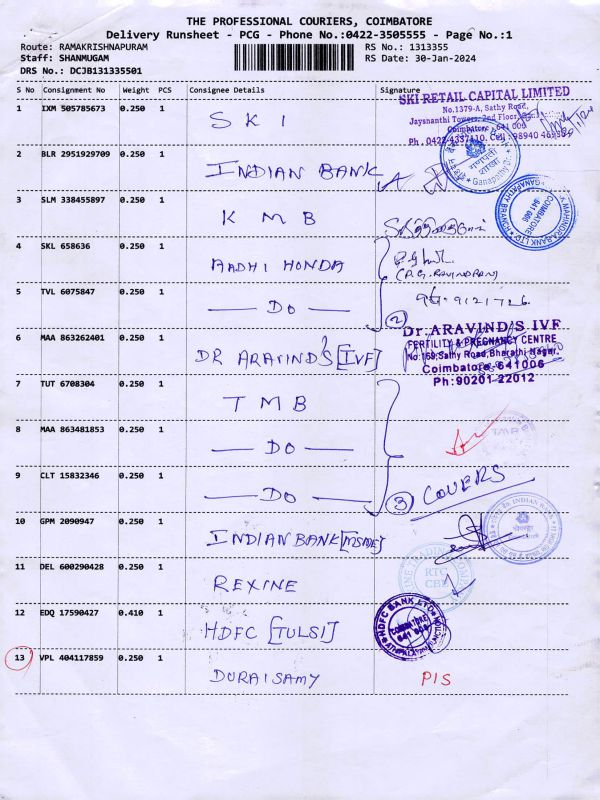 THE PROFESSIONAL COURIERS, COIMBATORE
Delivery Runsheet - PCG - Phone No.:0422-3505555 - Page No.:1
Route: RAMAKRISHNAPURAM
Staff: SHANMUGAM
DRS No.: DCJB131335501
RS No.: 1313355
RS Date: 30-Jan-2024
S No Consignment No Weight PCS Consignee Details Signature
1 IXM 505785673 0.250 1 SKI
SKI RETAIL CAPITAL LIMITED
No.1379-A, Sathy Road,
Jayshanthi Towers, 2nd Floor,
Coimbatore - 641 006
Ph. 0422-4337110. Cell: 98940 46935
2 BLR 2951929709 0.250 1 INDIAN BANK
Ganapathy Br.
3 SLM 338455897 0.250 1 KMB
MAHINDRA BANK LTD. GANAPATHY BRANCH
COIMBATORE
641 006
4 SKL 658636 0.250 1 AADHI HONDA
(P.G. RAVINDRAN)
5 TVL 6075847 0.250 1 — DO — 2
6 MAA 863262401 0.250 1 DR ARAVIND'S [IVF]
Dr.ARAVIND'S IVF
FERTILITY & PREGNANCY CENTRE
No:169, Sathy Road, Bharathi Nagar,
Coimbatore-641006
Ph:90201 22012
7 TUT 6708304 0.250 1 TMB
8 MAA 863481853 0.250 1 — DO —
9 CLT 15832346 0.250 1 — DO — 3 COVERS
10 GPM 2090947 0.250 1 INDIAN BANK [MSME]
INDIAN BANK
11 DEL 600290428 0.250 1 REXINE
RTC
CBE
12 EDQ 17590427 0.410 1 HDFC [TULSI]
HDFC BANK LTD
COIMBATORE
641 004
13 VPL 404117859 0.250 1 DURAISAMY PIS